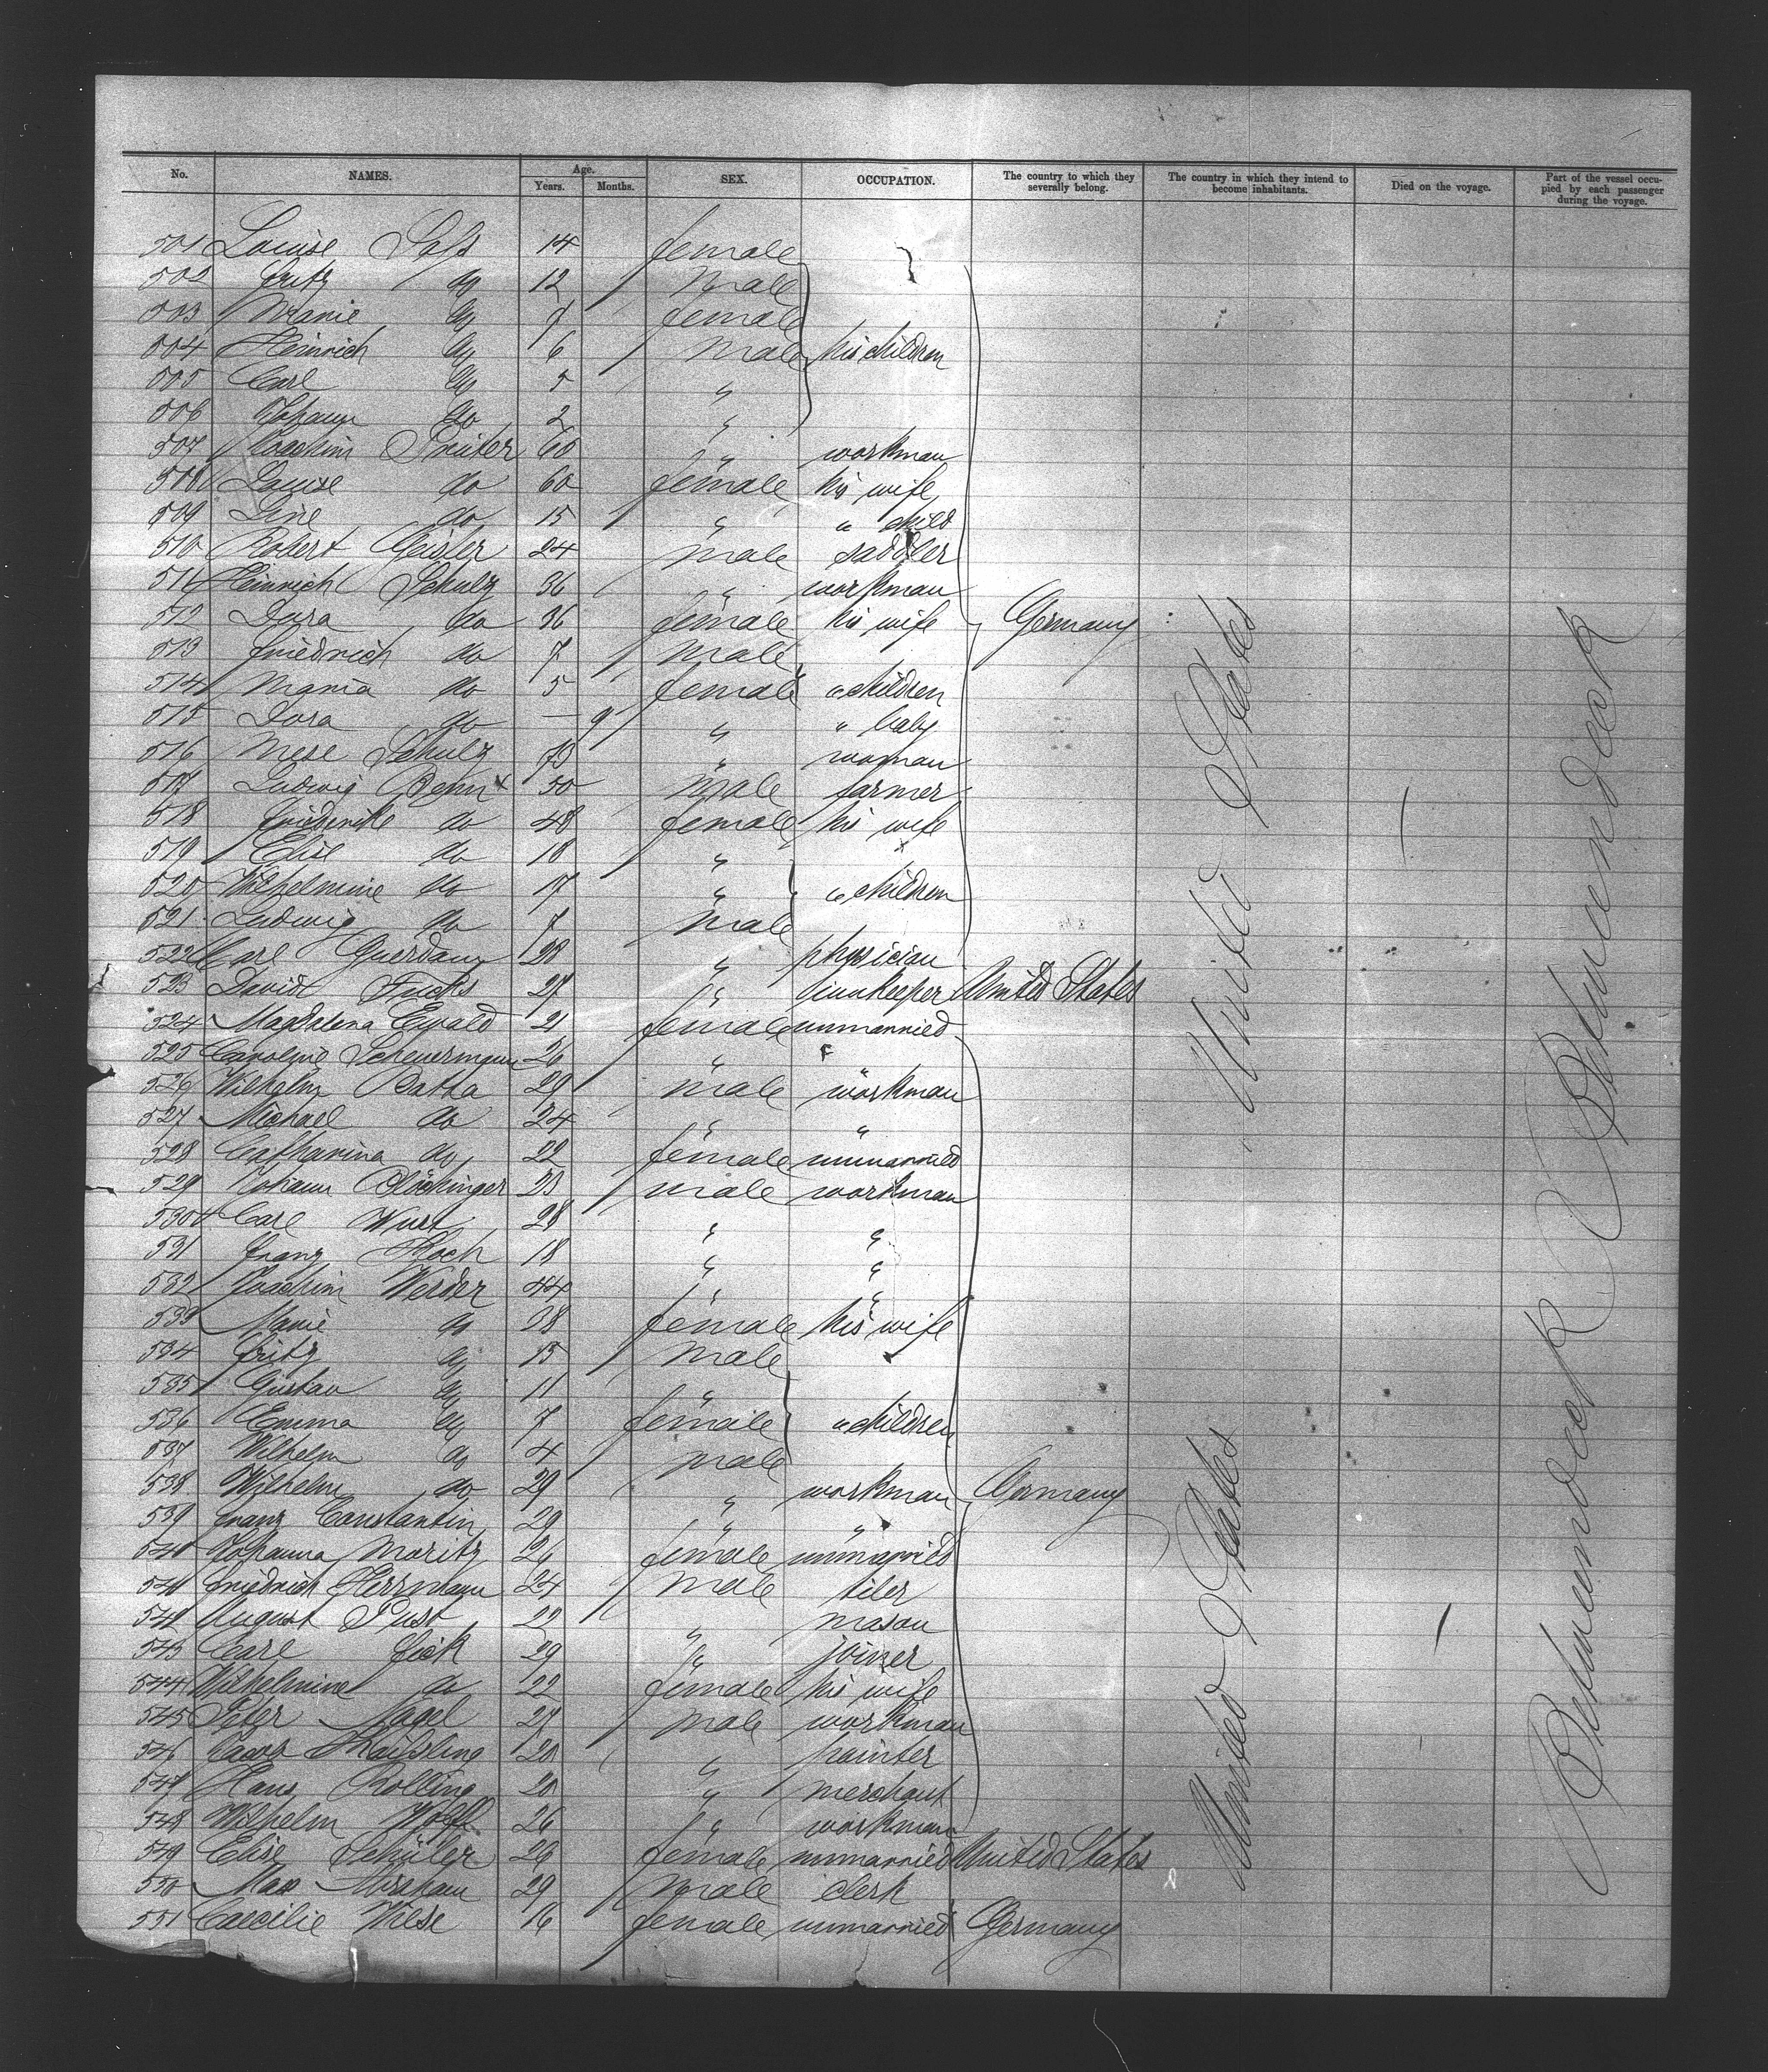 No. NAMES. Age. Years. Months. SEX. OCCUPATION. The country to which they severally belong. The country in which they intend to become inhabitants. Died on the voyage. Part of the vessel occupied by each passenger during the voyage.
501 Louise 14 female
502 Fritz do 12 male
503 Marie do female
504 Heinrich do 6 male his children
505 Carl do 5 "
506 Johann do 2 "
507 Joachim 60 " workman
508 Louise do 60 female his wife
509 Line do 15 " " child
510 Robert Geisler 24 male saddler
511 Heinrich Schulz 36 " workman
512 Dora do 36 female his wife Germany
513 Friedrich do 7 male
514 Maria do 5 female " children
515 Dora do — 9 " " baby
516 Schulz " woman
517 Ludwig 50 male farmer
518 Friederike do 48 female his wife
519 Elise do 18 "
520 Wilhelmine do 17 " " children
521 Ludwig do 7 male
522 Carl 28 " physician
523 David Fuchs 27 " innkeeper United States
524 Magdalena Ewald 21 female unmarried
525 Caroline Scheuermann 26 " "
526 Wilhelm Batha 29 male workman
527 Michael do 24 " "
528 Catharina do 22 female unmarried
529 Johann 23 male workman
530 Carl Wust 28 " "
531 Franz Koch 18 " "
532 Joachim Werder 44 " "
533 Marie do 38 female his wife
534 Fritz do 15 male
535 Gustav do 11 "
536 Emma do 7 female " children
537 Wilhelm do 4 male
538 Wilhelm do 29 " workman Germany
539 Franz Constantin 29 " "
540 Johanna Moritz 26 female unmarried
541 Friedrich Herrmann 24 male tiler
542 August Pust 22 " mason
543 Carl Fick 29 " joiner
544 Wilhelmine do 22 female his wife
545 Peter Nagel 27 male workman
546 Jacob 20 " painter
547 Hans Rolling 20 " merchant
548 Wilhelm Wolff 26 " workman
549 Elise Schüler 29 female unmarried United States
550 Max Abraham 29 male clerk
551 Caecilie Wiese 16 female unmarried Germany
United States
United States
Between deck
Between deck